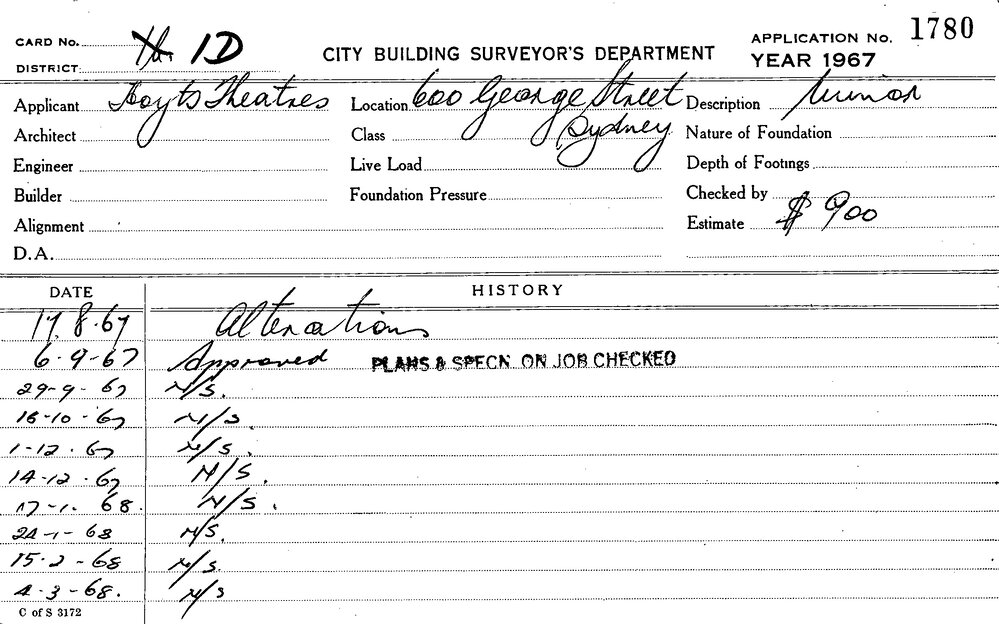 CARD No. 1D
CITY BUILDING SURVEYOR'S DEPARTMENT
APPLICATION No. 1780
DISTRICT
YEAR 1967
Applicant Hoyts Theatres Location 600 George Street Description Minor
Architect Class Sydney Nature of Foundation
Engineer Live Load Depth of Footings
Builder Foundation Pressure Checked by
Alignment Estimate $ 900
D.A.
DATE HISTORY
17.8.67 Alterations
6-9-67 Approved PLANS & SPECN. ON JOB CHECKED
29-9-67 N/S.
16-10-67 N/S.
1-12-67 N/S.
14-12-67 N/S.
17-1-68. N/S.
24-1-68 N/S.
15-2-68 N/S.
4-3-68. N/S
C of S 3172